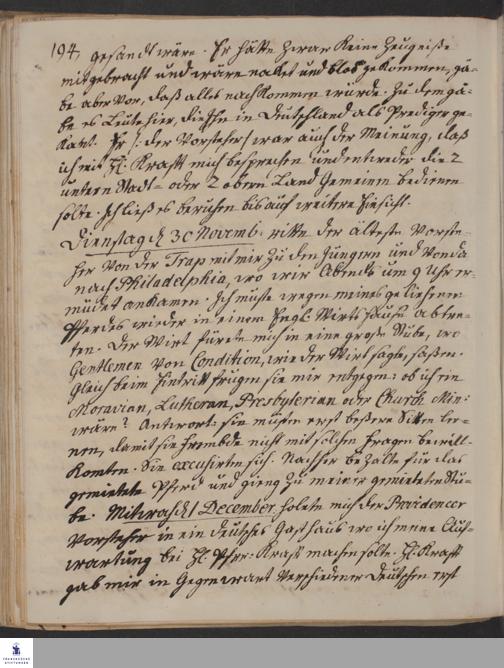 194, gesandt wäre. Er hätte zwar keine Zeugniße
mitgebracht und wäre nacket und blos gekommen, gä-
be aber vor, daß alles nachkommen würde. Zu dem gä-
be es Leüte hier, die Ihn in Deütschland als Prediger ge-
kant. Er /: der Vorsteher / war auch der Meinung, daß
ich mit H: Krafft mich besprechen und entweder die 2
untern Stadt- oder 2 obern Land Gemeinen bedienen
solte. Ich ließ es beruhen bis auf weitere Einsicht.
Dienstag d 30 Novemb. ritte der älteste Vorste-
her von der Trap mit mir zu den Jüngern und von da
nach Philadelphia, wo wir Abends um 9 Uhr er-
müdet ankamen. Ich muste wegen meines geliehenen
Pferdes wieder in einem Engl. Wirts Hause abtre-
ten. Der Wirt fürete mich in eine große Stube, wo
Gentlemen von Condition, wie der Wirt sagte, saßen.
Gleich beim Eintritt frugen sie mir entgegen: ob ich ein
Moravian, Lutheran, Presbyterian oder Church Min:
wäre? Antwort: sie müsten erst beßere Sitten ler-
nen, damit sie Frembde nicht mit solchen Fragen bewill-
komten. Sie excusirten sich. Nachher bezalte für das
gemietete Pferd und gieng zu meiner gemieteten Stu-
be. Mitwoch d 1 December holete mich der Providencer
Vorsteher in ein deutsches Gasthaus wo ich meine Auf-
wartung bei H: Pfr. Kraft machen solte. H: Krafft
gab mir in Gegenwart verschiedener Deutschen erst
FRANCKESCHE
STIFTUNGEN